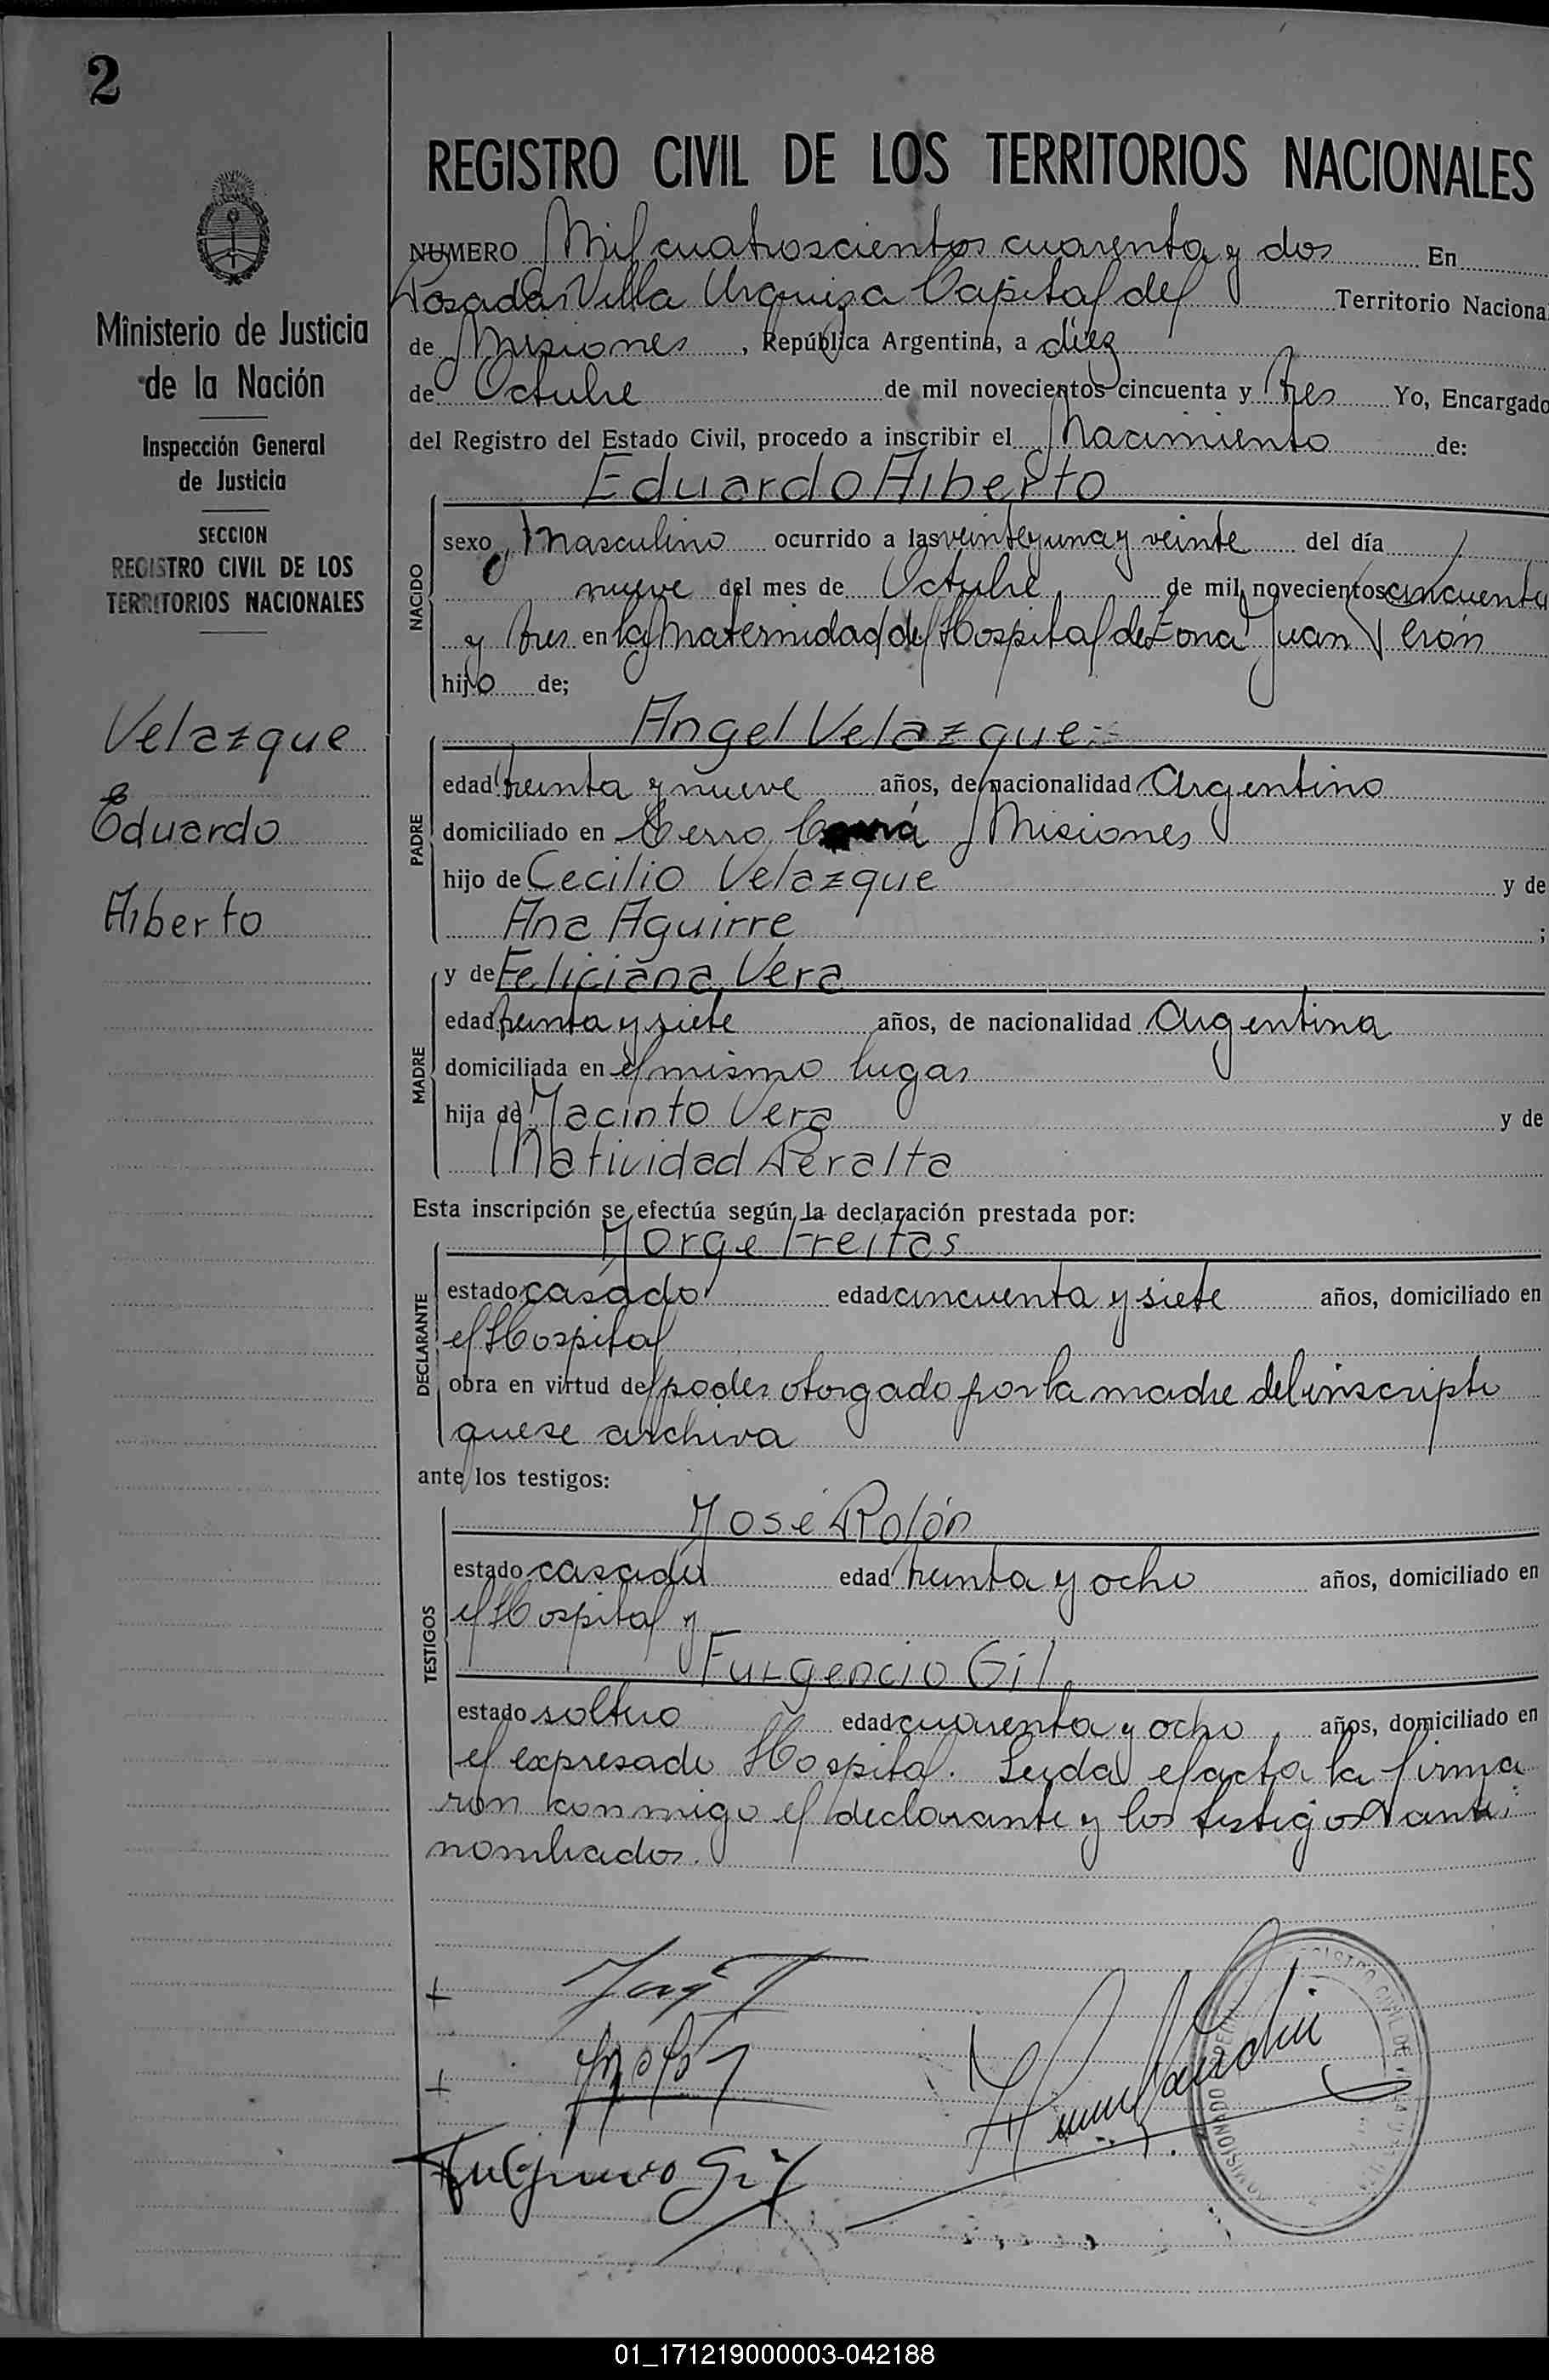 2
REGISTRO CIVIL DE LOS TERRITORIOS NACIONALES
Ministerio de Justicia
de la Nación
Inspección General
de Justicia
SECCION
REGISTRO CIVIL DE LOS
TERRITORIOS NACIONALES
Velazque
Eduardo
Alberto
NUMERO Mil cuatroscientos cuarenta y dos En
Posadas Villa Urquiza Capital del Territorio Naciona
de Misiones, República Argentina, a diez
de Octubre de mil novecientos cincuenta y tres Yo, Encargado
del Registro del Estado Civil, procedo a inscribir el Nacimiento de:
Eduardo Alberto
NACIDO
sexo masculino ocurrido a las veinteyuna y veinte del día
nueve del mes de Octubre de mil novecientos cincuenta
y tres en la Maternidad del Hospital de Zona Juan Verón
hijo de;
Angel Velazque
PADRE
edad treinta y nueve años, de nacionalidad Argentino
domiciliado en Cerro Corá Misiones
hijo de Cecilio Velazque y de
Ana Aguirre ;
MADRE
y de Feliciana Vera
edad treinta y siete años, de nacionalidad Argentina
domiciliada en el mismo lugar
hija de Jacinto Vera y de
Natividad Peralta
Esta inscripción se efectúa según la declaración prestada por:
Jorge Freitas
DECLARANTE
estado casado edad cincuenta y siete años, domiciliado en
el Hospital
obra en virtud del poder otorgado por la madre del inscripto
que se archiva
ante los testigos:
José Rolón
TESTIGOS
estado casado edad treinta y ocho años, domiciliado en
el Hospital y
Fulgencio Gil
estado soltero edad cuarenta y ocho años, domiciliado en
el expresado Hospital. Leyda el acta la firma
ron conmigo el declarante y los testigos ante
nombrados.
Fulgencio Gil
01_171219000003-042188